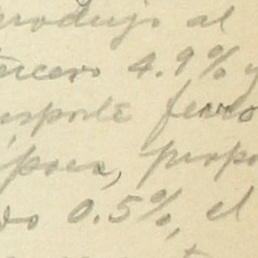 produjo al
tercero 4.9% y
nsporte ferro
época, propo
vo 0.5%, el